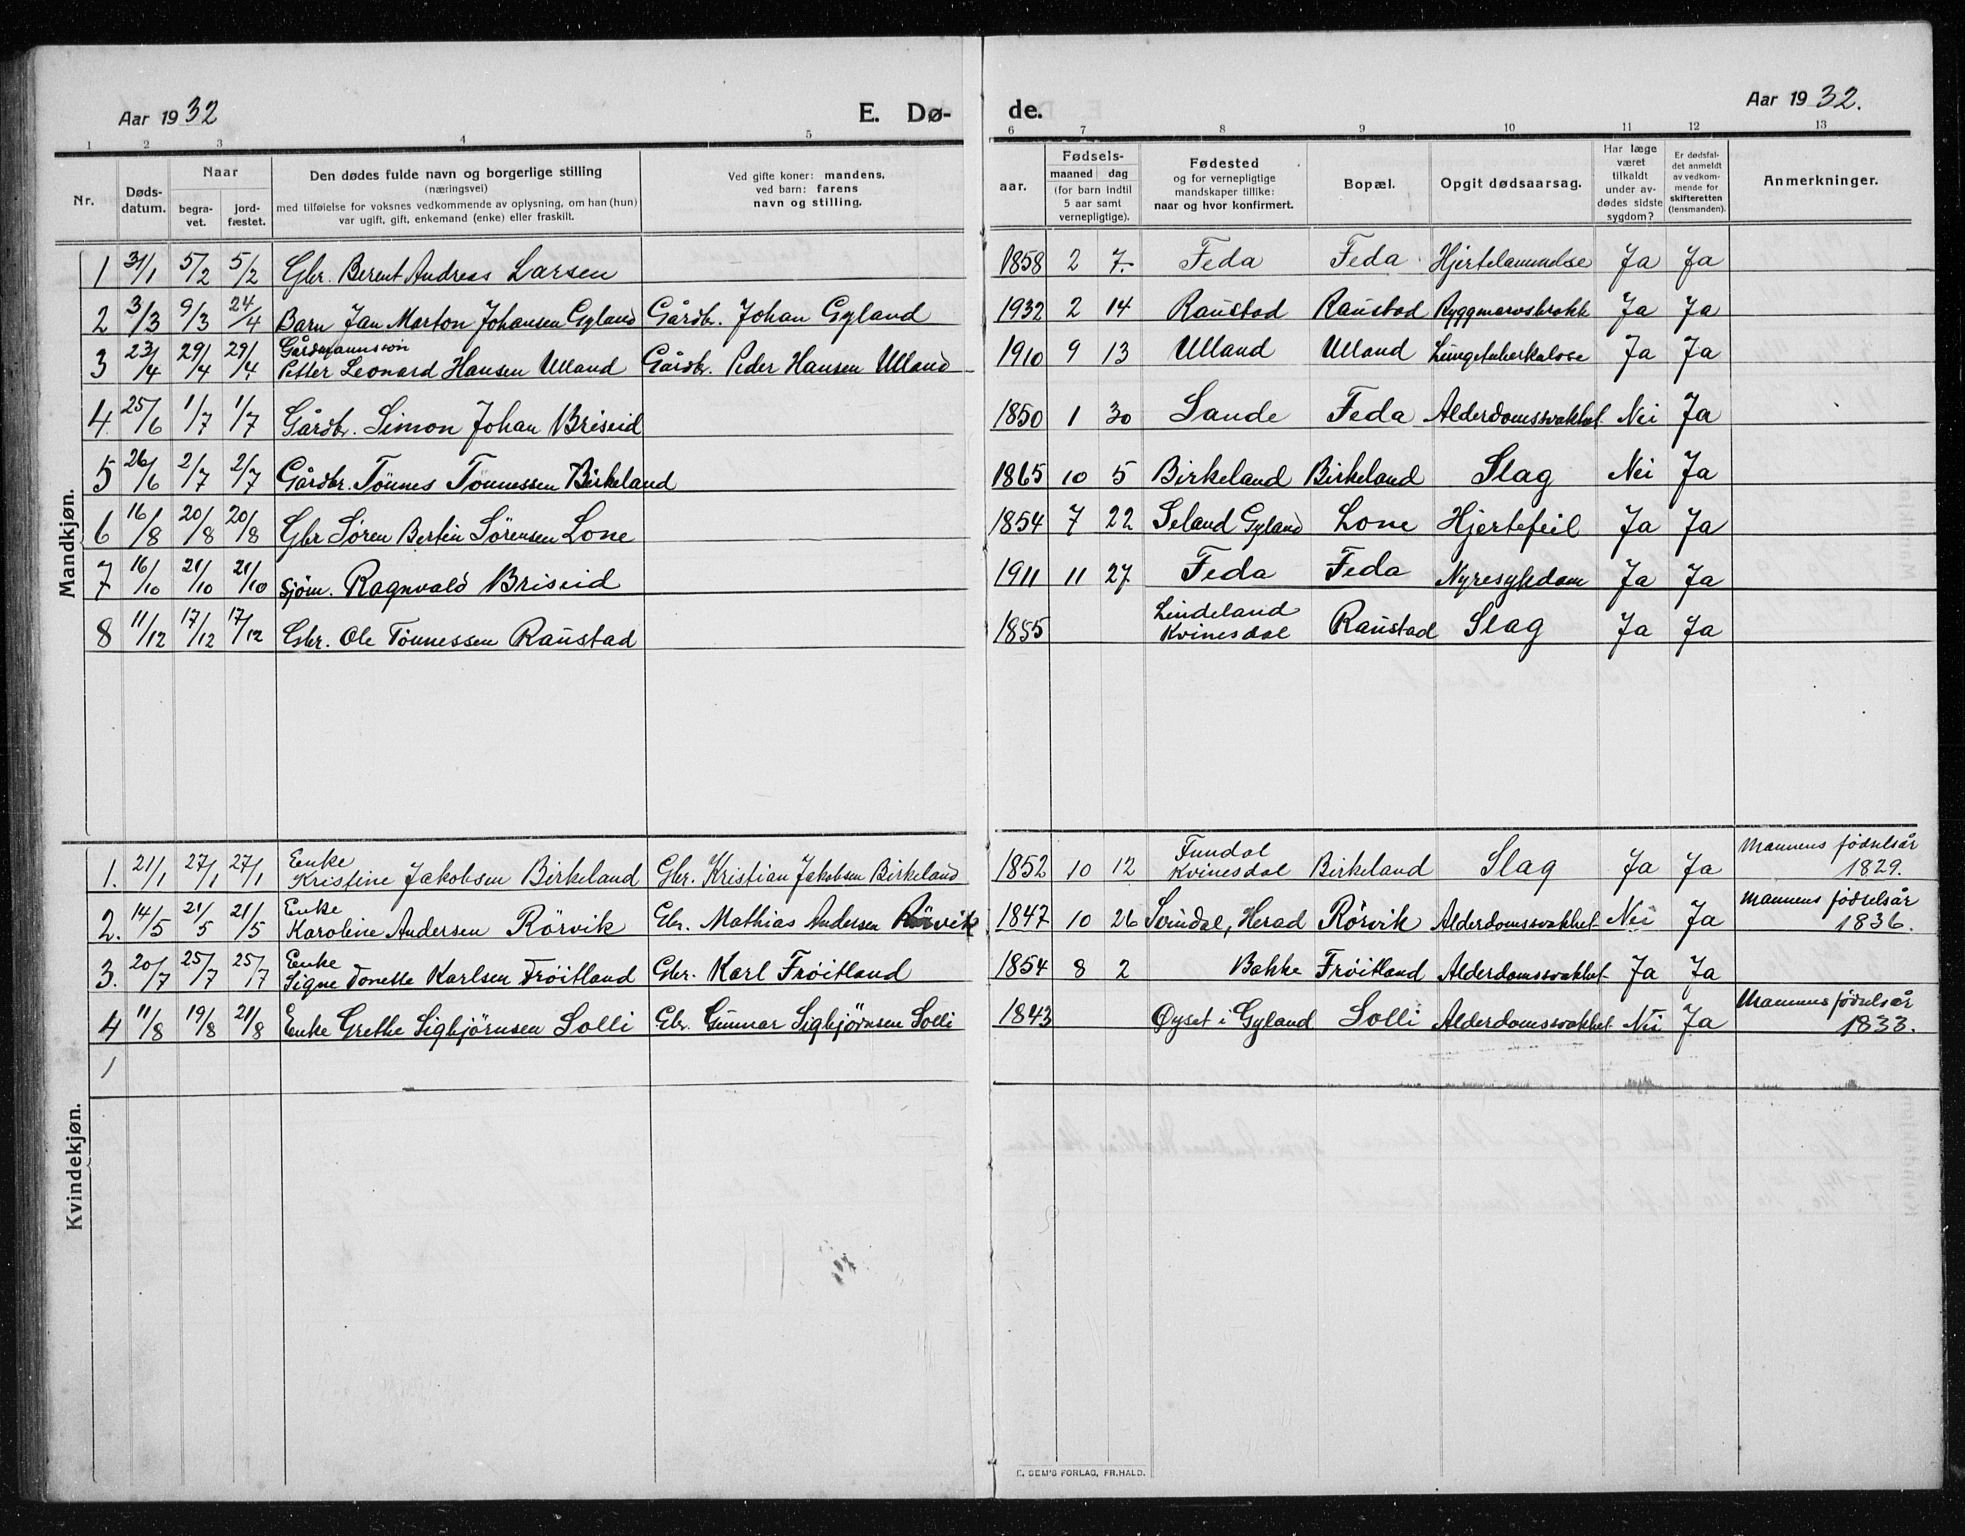 Aar 1932 E. Dø- de. Aar 1932.
1 2 3 4 5 6 7 8 9 10 11 12 13
Nr.
Døds-
datum.
Naar
begra-
vet.
jord-
fæstet.
Den dødes fulde navn og borgerlige stilling
(næringsvei)
med tilføielse for voksnes vedkommende av oplysning, om han (hun)
var ugift, gift, enkemand (enke) eller fraskilt.
Ved gifte koner: mandens.
ved barn: farens
navn og stilling.
aar.
Fødsels-
maaned dag
(for barn indtil
5 aar samt
vernepligtige).
Fødested
og for vernepligtige
mandskaper tillike:
naar og hvor konfirmert.
Bopæl.
Opgit dødsaarsag.
Har læge
været
tilkaldt
under av-
dødes sidste
sygdom?
Er dødsfal-
det anmeldt
av vedkom-
mende for
skifteretten
(lensmanden).
Anmerkninger.
Mandkjøn.
1 31/1 5/2 5/2 Gbr. Berent Andreas Larsen 1858 2 7. Feda Feda Hjertelammelse Ja Ja
2 3/3 9/3 24/4 Barn Jan Marton Johansen Gyland Gårdbr. Johan Gyland 1932 2 14 Raustad Raustad Ryggmarvsbrokk Ja Ja
Gårdmannssøn
3 23/4 29/4 29/4 Petter Leonard Hansen Ulland Gårdbr. Peder Hansen Ulland 1910 9 13 Ulland Ulland Lungetuberkulose Ja Ja
4. 25/6 1/7 1/7 Gårdbr. Simon Johan Briseid 1850 1 30 Sande Feda Alderdomssvakhet Nei Ja
5 26/6 2/7 2/7 Gårdbr. Tönnes Tönnessen Birkeland 1865 10 5 Birkeland Birkeland Slag Nei Ja
6 16/8 20/8 20/8 Gbr Søren Bertin Sørensen Lone 1854 7 22 Seland Gyland Lone Hjertefeil Ja Ja
7 16/10 21/10 21/10 Sjøm. Ragnvald Briseid 1911 11 27 Feda Feda Nyresykdom Ja Ja
8 11/12 17/12 17/12 Gbr. Ole Tönnessen Raustad 1855 Lindeland
Kvinesdal Raustad Slag Ja Ja
Kvindekjøn.
Enke
1. 21/1 27/1 27/1 Kristine Jakobsen Birkeland Gbr. Kristian Jakobsen Birkeland 1852 10 12 Fundal
Kvinesdal Birkeland Slag Ja Ja Mannens fødselsår
1829.
Enke
2. 14/5 21/5 21/5 Karoline Andersen Rörvik Gbr. Mathias Andersen Rörvik 1847 10 26 Svindal, Herad Rörvik Alderdomssvakhet Nei Ja Mannens fødselsår
1836.
Enke
3. 20/7 25/7 25/7 Signe Tonette Karlsen Fröitland Gbr. Karl Fröitland 1854 8 2 Bakke Fröitland Alderdomssvakhet Ja Ja
4 11/8 19/8 21/8 Enke Grethe Sigbjörnsen Solli Gbr. Gunnar Sigbjörnsen Solli 1843 Øyset i Gyland Solli Alderdomssvakhet Nei Ja Mannens fødselsår
1833.
1
E. SEM'S FORLAG, FR.HALD.